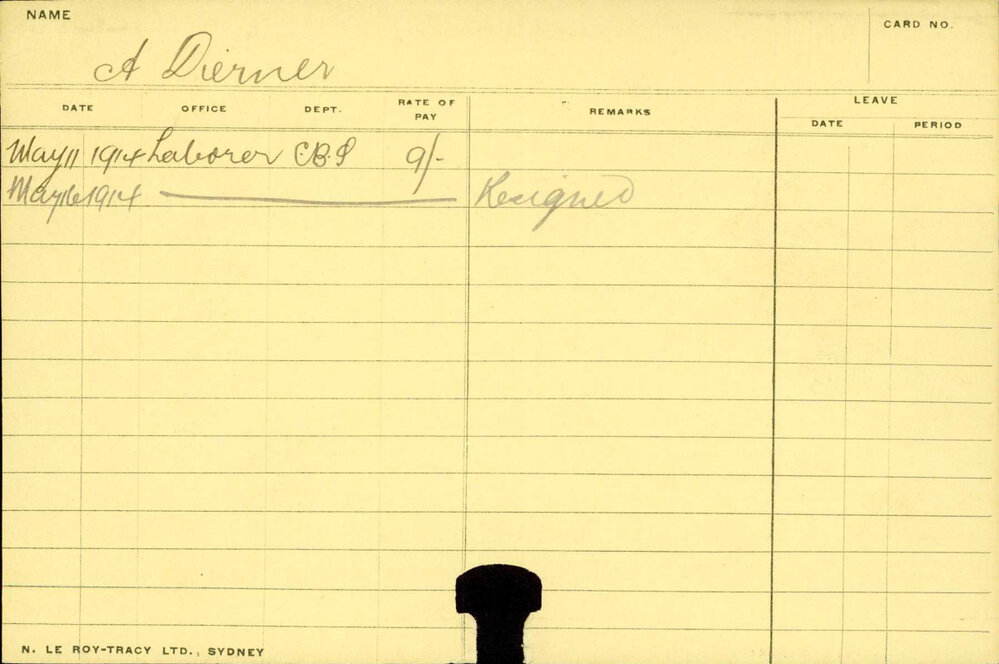 NAME
CARD NO.
A Dierner
DATE OFFICE DEPT. RATE OF PAY REMARKS LEAVE
DATE PERIOD
May 11 1914 Laborer C.B.S 9/-
May 16 1914 Resigned
N. LE ROY-TRACY LTD., SYDNEY